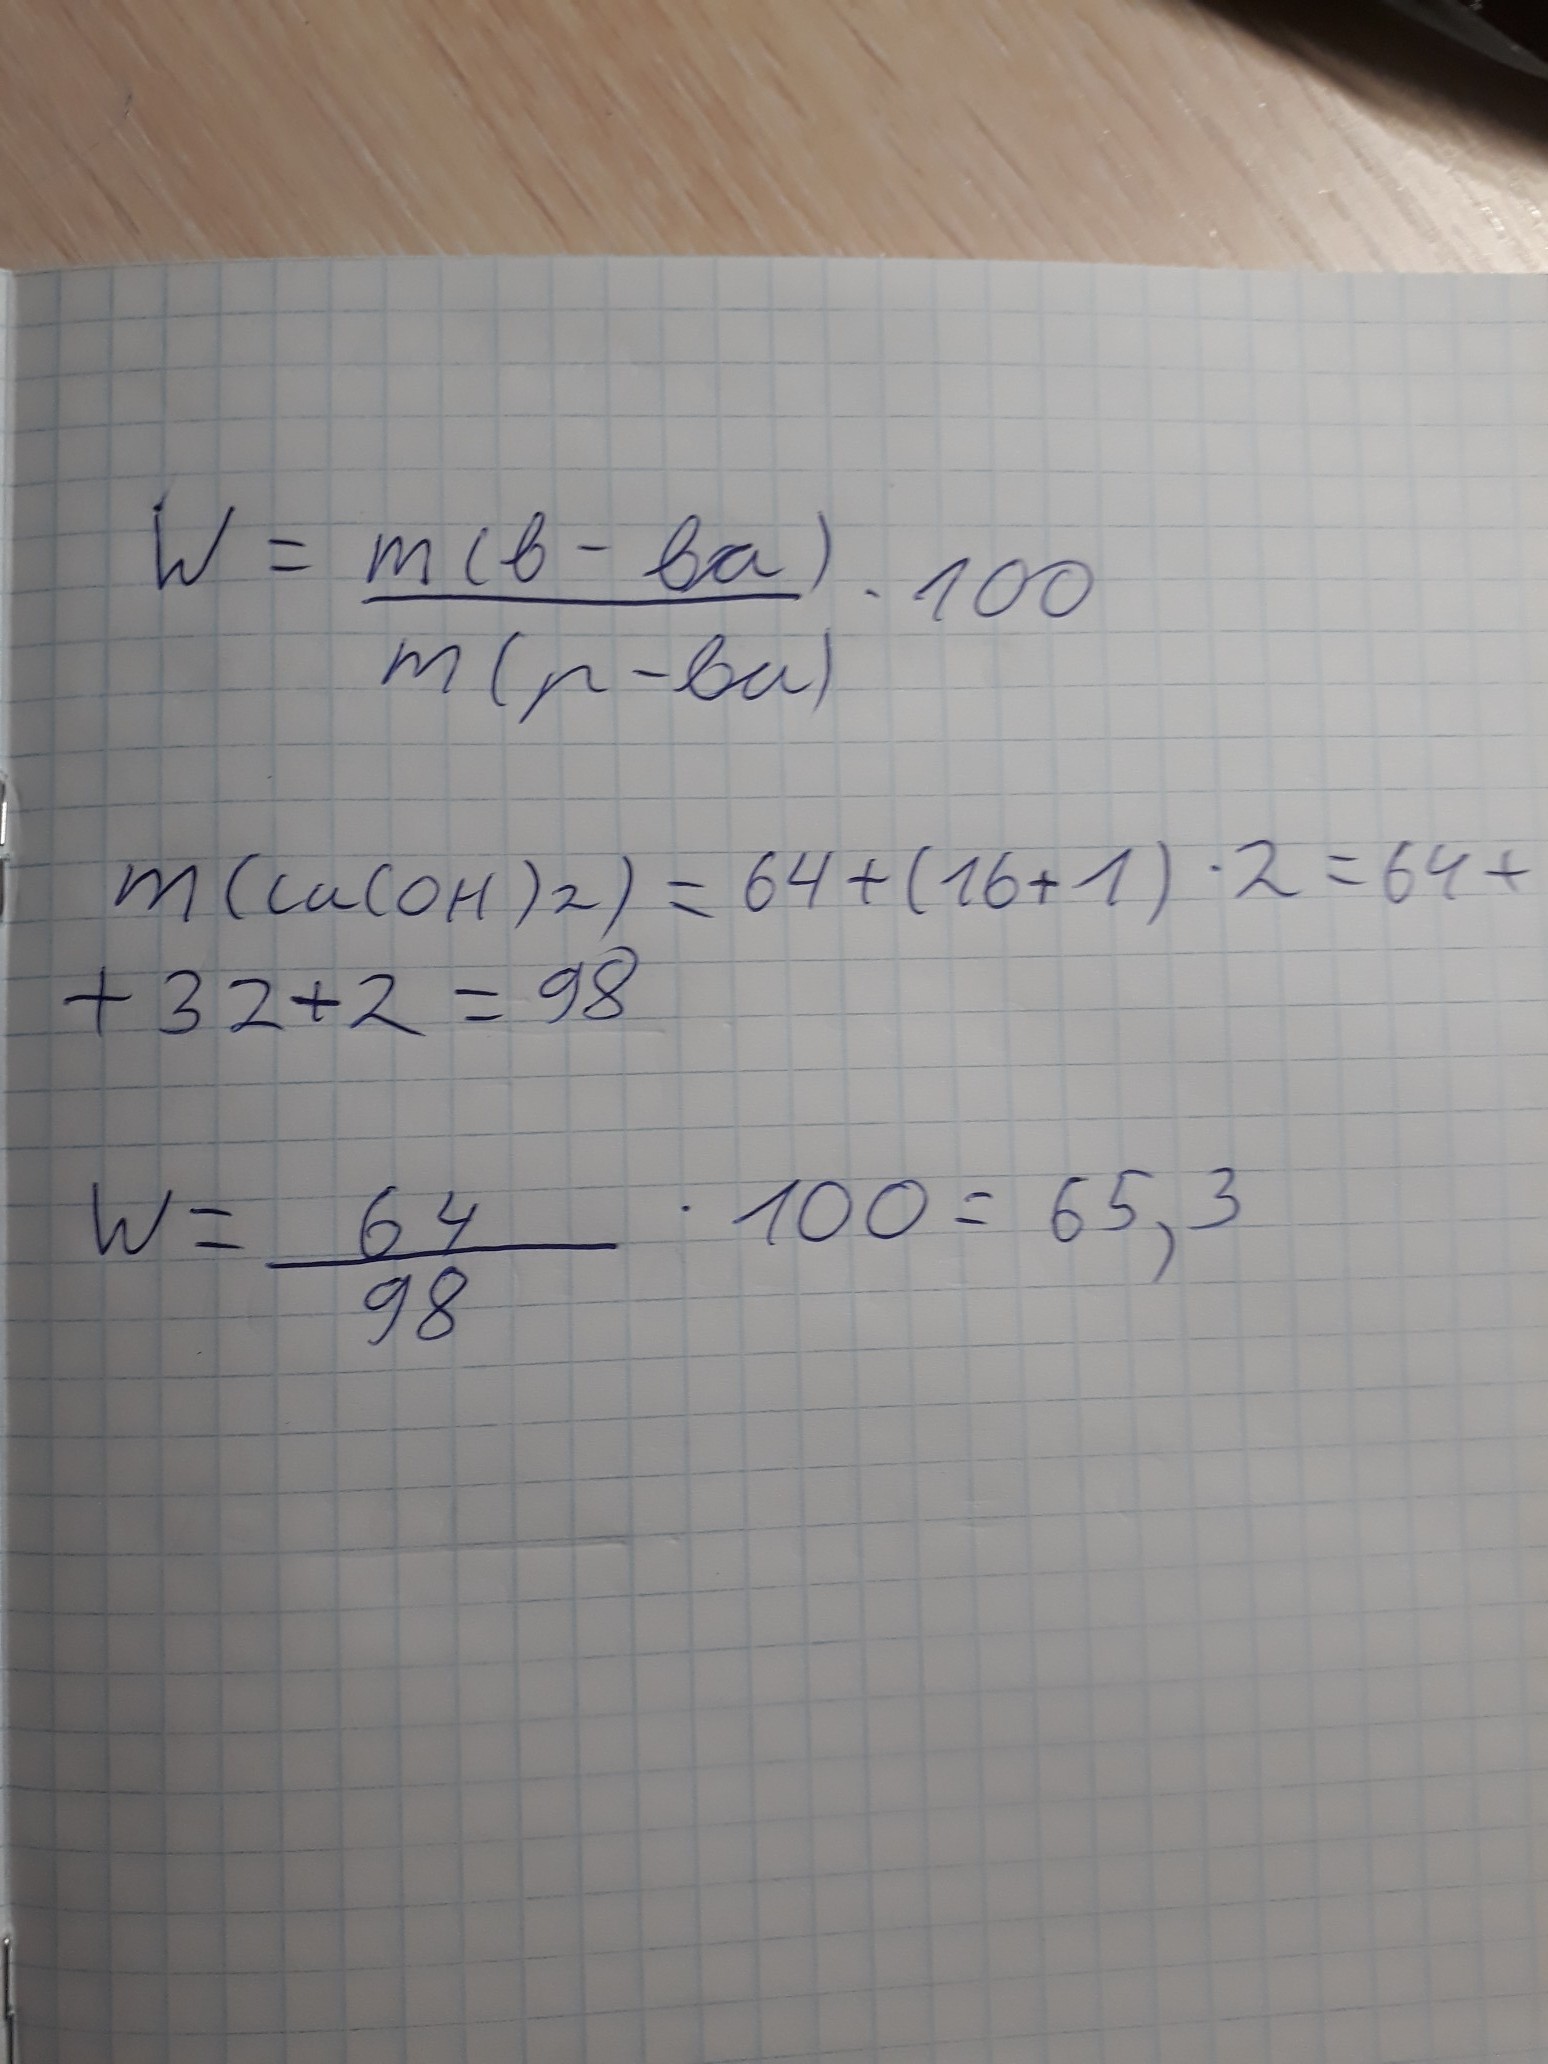 W = m(в-ва) / m(р-ва) · 100
m(Cu(OH)2) = 64+(16+1)·2=64+
+32+2=98
W = 64 / 98 · 100 = 65,3